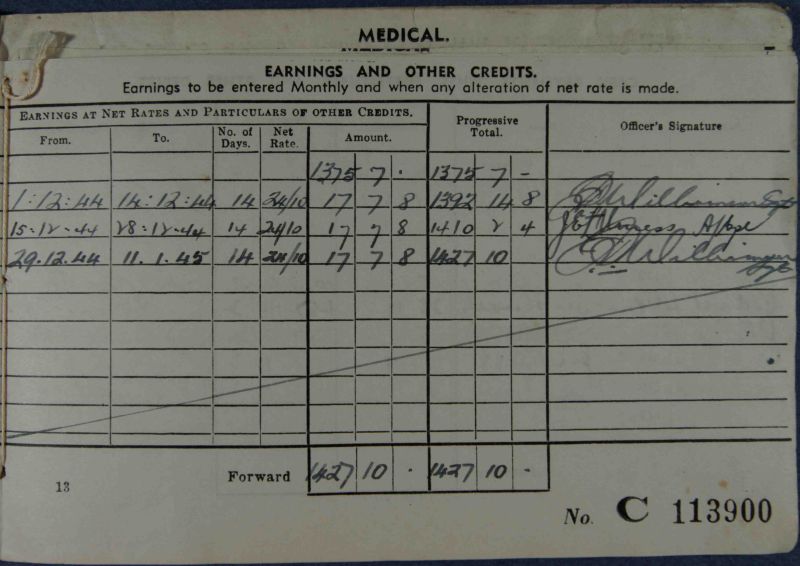 MEDICAL.
EARNINGS AND OTHER CREDITS.
Earnings to be entered Monthly and when any alteration of net rate is made.
EARNINGS AT NET RATES AND PARTICULARS OF OTHER CREDITS. Progressive Total. Officer's Signature
From. To. No. of Days. Net Rate. Amount.
1375 7 · 1375 7 -
1:12:44 14:12:44 14 24/10 17 7 8 1392 14 8
15-12-44 28-12-44 14 24/10 17 7 8 1410 2 4
29.12.44 11.1.45 14 24/10 17 7 8 1427 10
Forward 1427 10 · 1427 10 -
13
No. C 113900